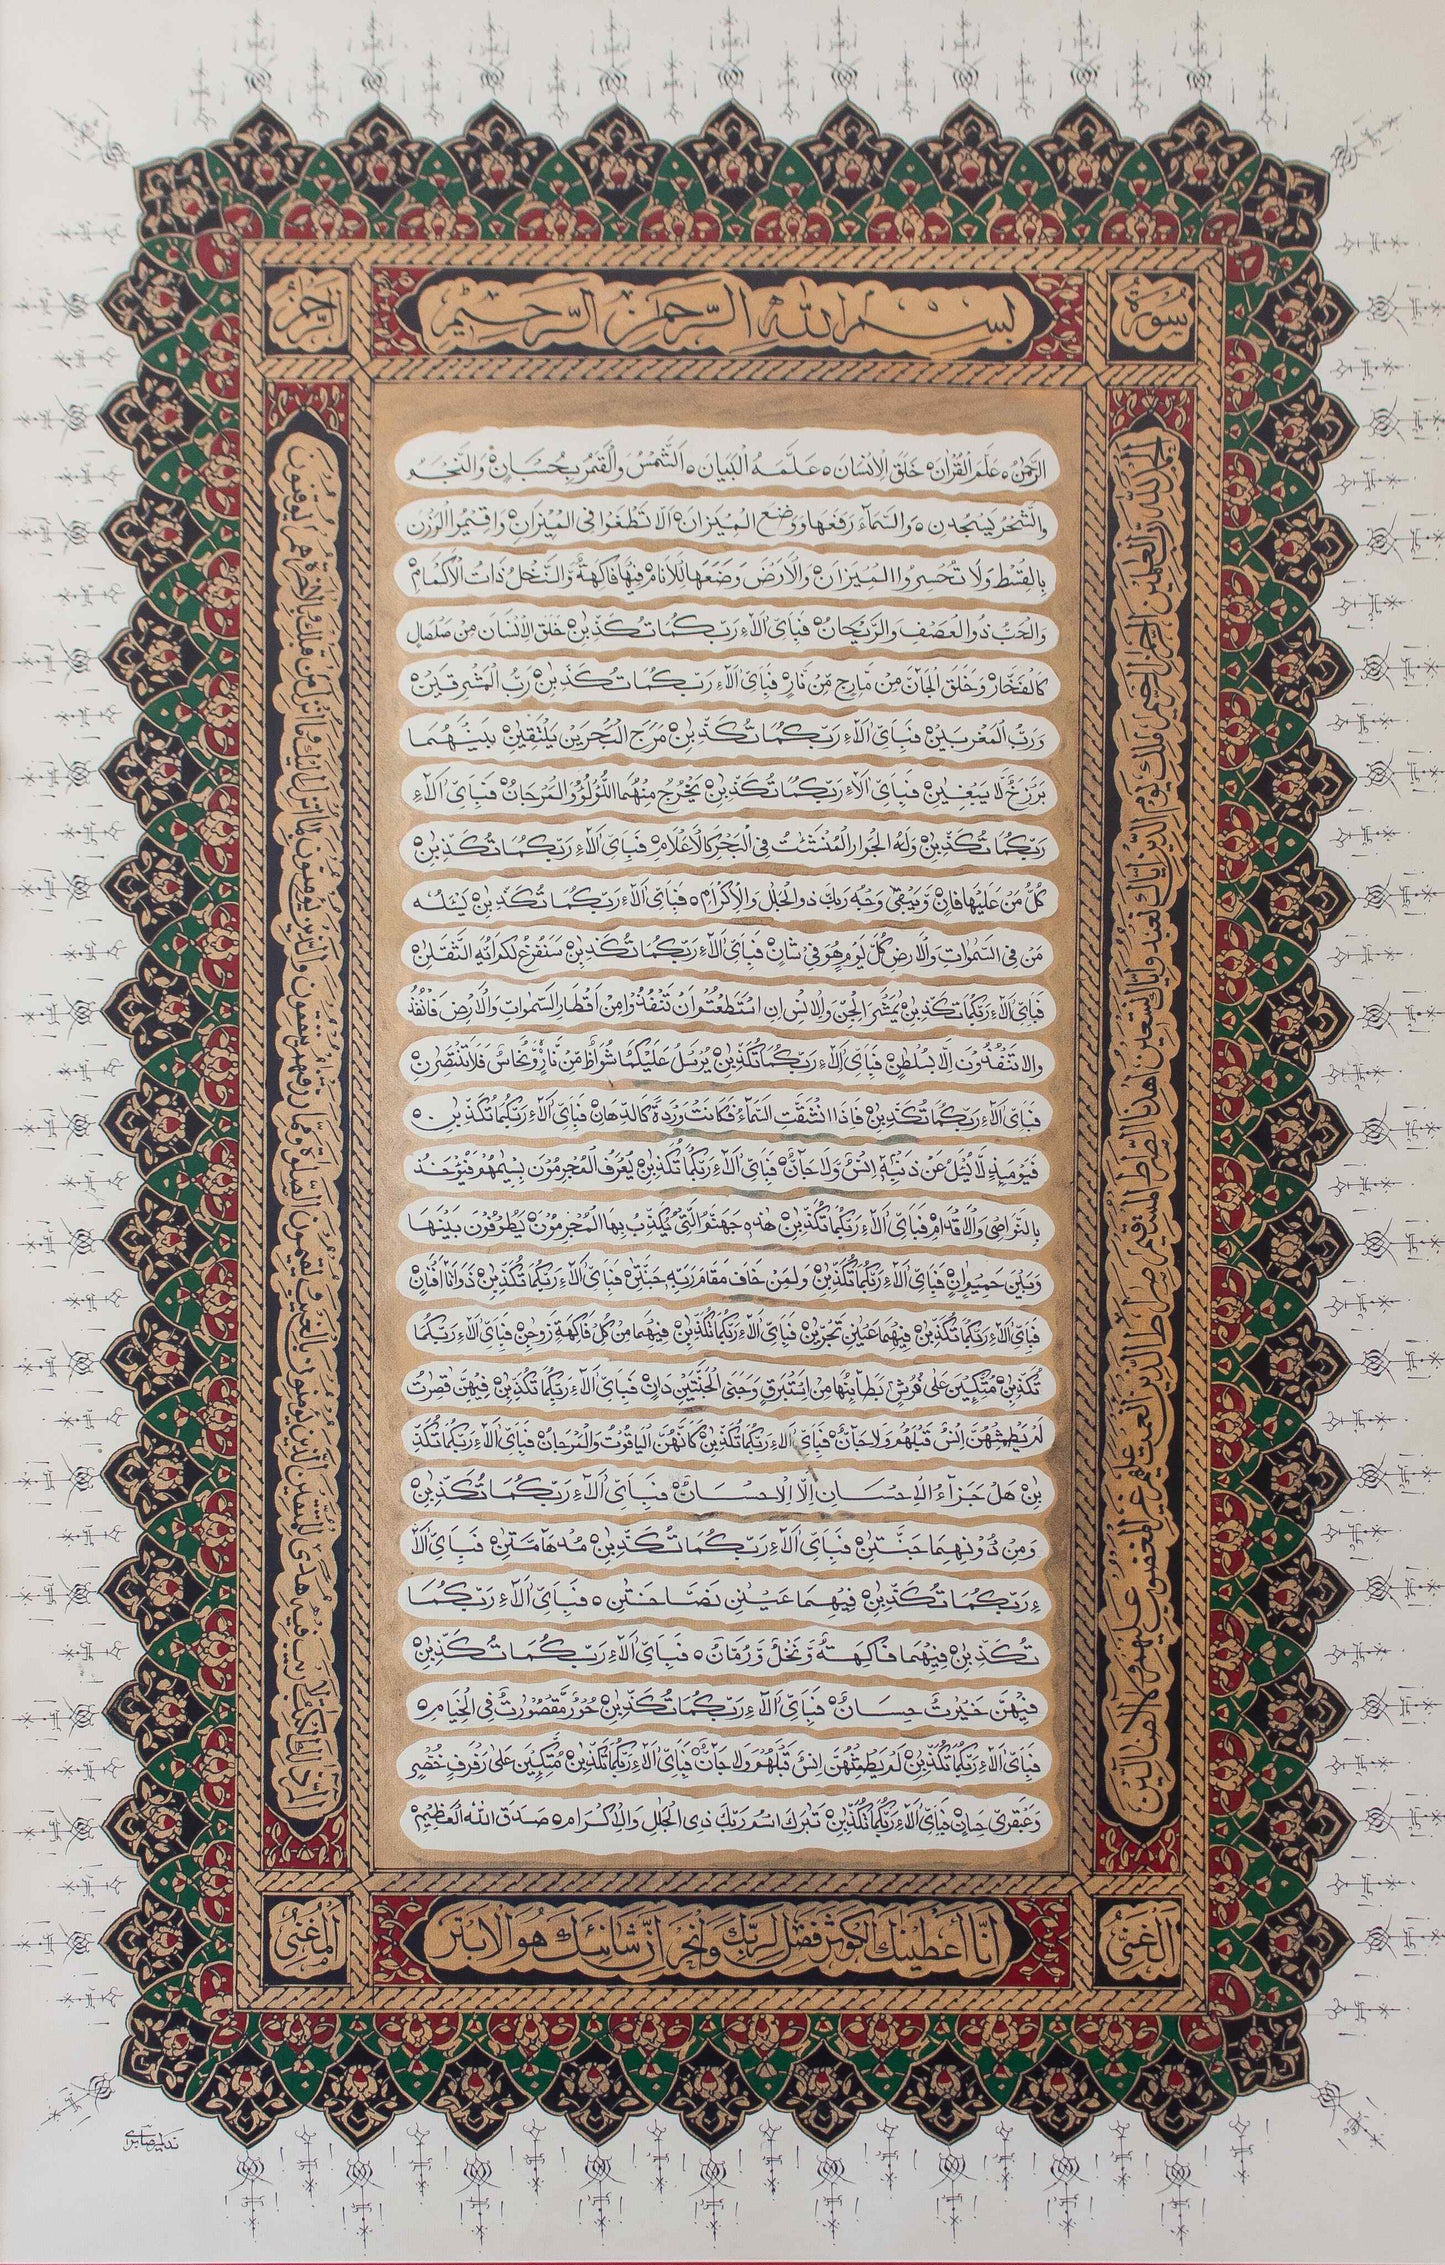 سورة
بسم الله الرحمن الرحيم
الرحمن
الحمد لله رب العلمين الرحمن الرحيم ملك يوم الدين اياك نعبد واياك نستعين اهدنا الصراط المستقيم صراط الذين انعمت عليهم غير المغضوب عليهم ولا الضالين
الرحمن ه علم القران ه خلق الانسان ه علمه البيان ه الشمس والقمر بحسبان ه والنجم
والشجر يسجدن ه والسماء رفعها ووضع الميزان ه الا تطغوا في الميزان ه واقيموا الوزن
بالقسط ولا تخسروا الميزان ه والارض وضعها للانام ه فيها فاكهة والنخل ذات الاكمام ه
والحب ذو العصف والريحان ه فباي الاء ربكما تكذبن ه خلق الانسان من صلصال
كالفخار ه وخلق الجان من مارج من نار ه فباي الاء ربكما تكذبن ه رب المشرقين ه
ورب المغربين ه فباي الاء ربكما تكذبن ه مرج البحرين يلتقين ه بينهما
برزخ لا يبغين ه فباي الاء ربكما تكذبن ه يخرج منهما اللؤلؤ والمرجان ه فباي الاء
ربكما تكذبن ه وله الجوار المنشئت في البحر كالاعلام ه فباي الاء ربكما تكذبن ه
كل من عليها فان ه ويبقى وجه ربك ذو الجلل والاكرام ه فباي الاء ربكما تكذبن ه يسئله
من في السموات والارض كل يوم هو في شان ه فباي الاء ربكما تكذبن ه سنفرغ لكم ايه الثقلن ه
فباي الاء ربكما تكذبن ه يمعشر الجن والانس ان استطعتم ان تنفذوا من اقطار السموات والارض فانفذ
وا لا تنفذون الا بسلطن ه فباي الاء ربكما تكذبن ه يرسل عليكما شواظ من نار ونحاس فلا تنتصرن ه
فباي الاء ربكما تكذبن ه فاذا انشقت السماء فكانت وردة كالدهان ه فباي الاء ربكما تكذبن ه
فيومئذ لا يسئل عن ذنبه انس ولا جان ه فباي الاء ربكما تكذبن ه يعرف المجرمون بسيمهم فيؤخذ
بالنواصي والاقدام ه فباي الاء ربكما تكذبن ه هذه جهنم التي يكذب بها المجرمون ه يطوفون بينها
وبين حميم ان ه فباي الاء ربكما تكذبن ه ولمن خاف مقام ربه جنتن ه فباي الاء ربكما تكذبن ه ذواتا افنان ه
فباي الاء ربكما تكذبن ه فيهما عينن تجرين ه فباي الاء ربكما تكذبن ه فيهما من كل فاكهة زوجن ه فباي الاء ربكما
تكذبن ه متكئين على فرش بطائنها من استبرق وجنى الجنتين دان ه فباي الاء ربكما تكذبن ه فيهن قصرت
لم يطمثهن انس قبلهم ولا جان ه فباي الاء ربكما تكذبن ه كانهن الياقوت والمرجان ه فباي الاء ربكما تكذ
بن ه هل جزاء الاحسان الا الاحسان ه فباي الاء ربكما تكذبن ه
ومن دونهما جنتن ه فباي الاء ربكما تكذبن ه مدهامتن ه فباي الا
ء ربكما تكذبن ه فيهما عينن نضاختن ه فباي الاء ربكما
تكذبن ه فيهما فاكهة ونخل ورمان ه فباي الاء ربكما تكذبن ه
فيهن خيرت حسان ه فباي الاء ربكما تكذبن ه حور مقصورت في الخيام ه
فباي الاء ربكما تكذبن ه لم يطمثهن انس قبلهم ولا جان ه فباي الاء ربكما تكذبن ه متكئين على رفرف خضر
وعبقري حسان ه فباي الاء ربكما تكذبن ه تبرك اسم ربك ذي الجلل والاكرام ه صدق الله العظيم
الم ذلك الكتب لا ريب فيه هدى للمتقين الذين يؤمنون بالغيب ويقيمون الصلوة ومما رزقنهم ينفقون والذين يؤمنون بما انزل اليك وما انزل من قبلك وبالاخرة هم يوقنون
الغني
انا اعطينك الكوثر فصل لربك وانحر ان شانئك هو الابتر
المغني